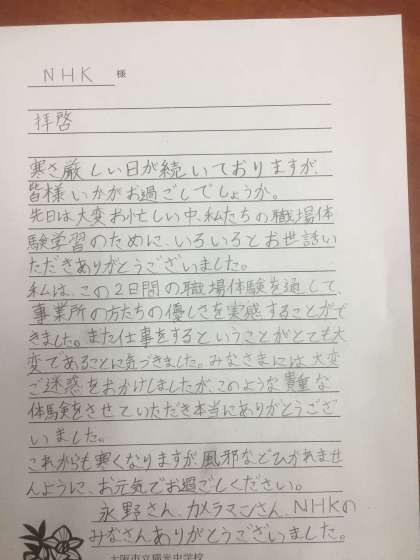 NHK 様
拝啓
寒さ厳しい日が続いておりますが、
皆様いかがお過ごしでしょうか。
先日は大変お忙しい中、私たちの職場体
験学習のために、いろいろとお世話い
ただきありがとうございました。
私は、この2日間の職場体験を通して、
事業所の方たちの優しさを実感することがで
きました。また仕事をするということがとても大
変であることに気づきました。みなさまには大変
ご迷惑をおかけしましたが、このような貴重な
体験をさせていただき本当にありがとうござ
いました。
これからも寒くなりますが、風邪などひかれませ
んように、お元気でお過ごしください。
永野さん、カメラマンさん、NHKの
みなさんありがとうございました。
大阪市立 中学校